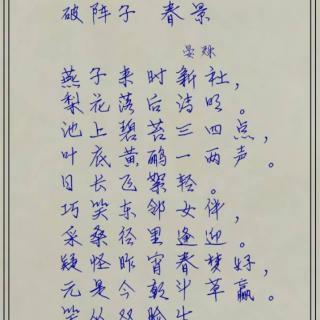 破阵子 春景
晏殊
燕子来时新社，
梨花落后清明。
池上碧苔三四点，
叶底黄鹂一两声。
日长飞絮轻。
巧笑东邻女伴，
采桑径里逢迎。
疑怪昨宵春梦好，
元是今朝斗草赢。
笑从双脸生